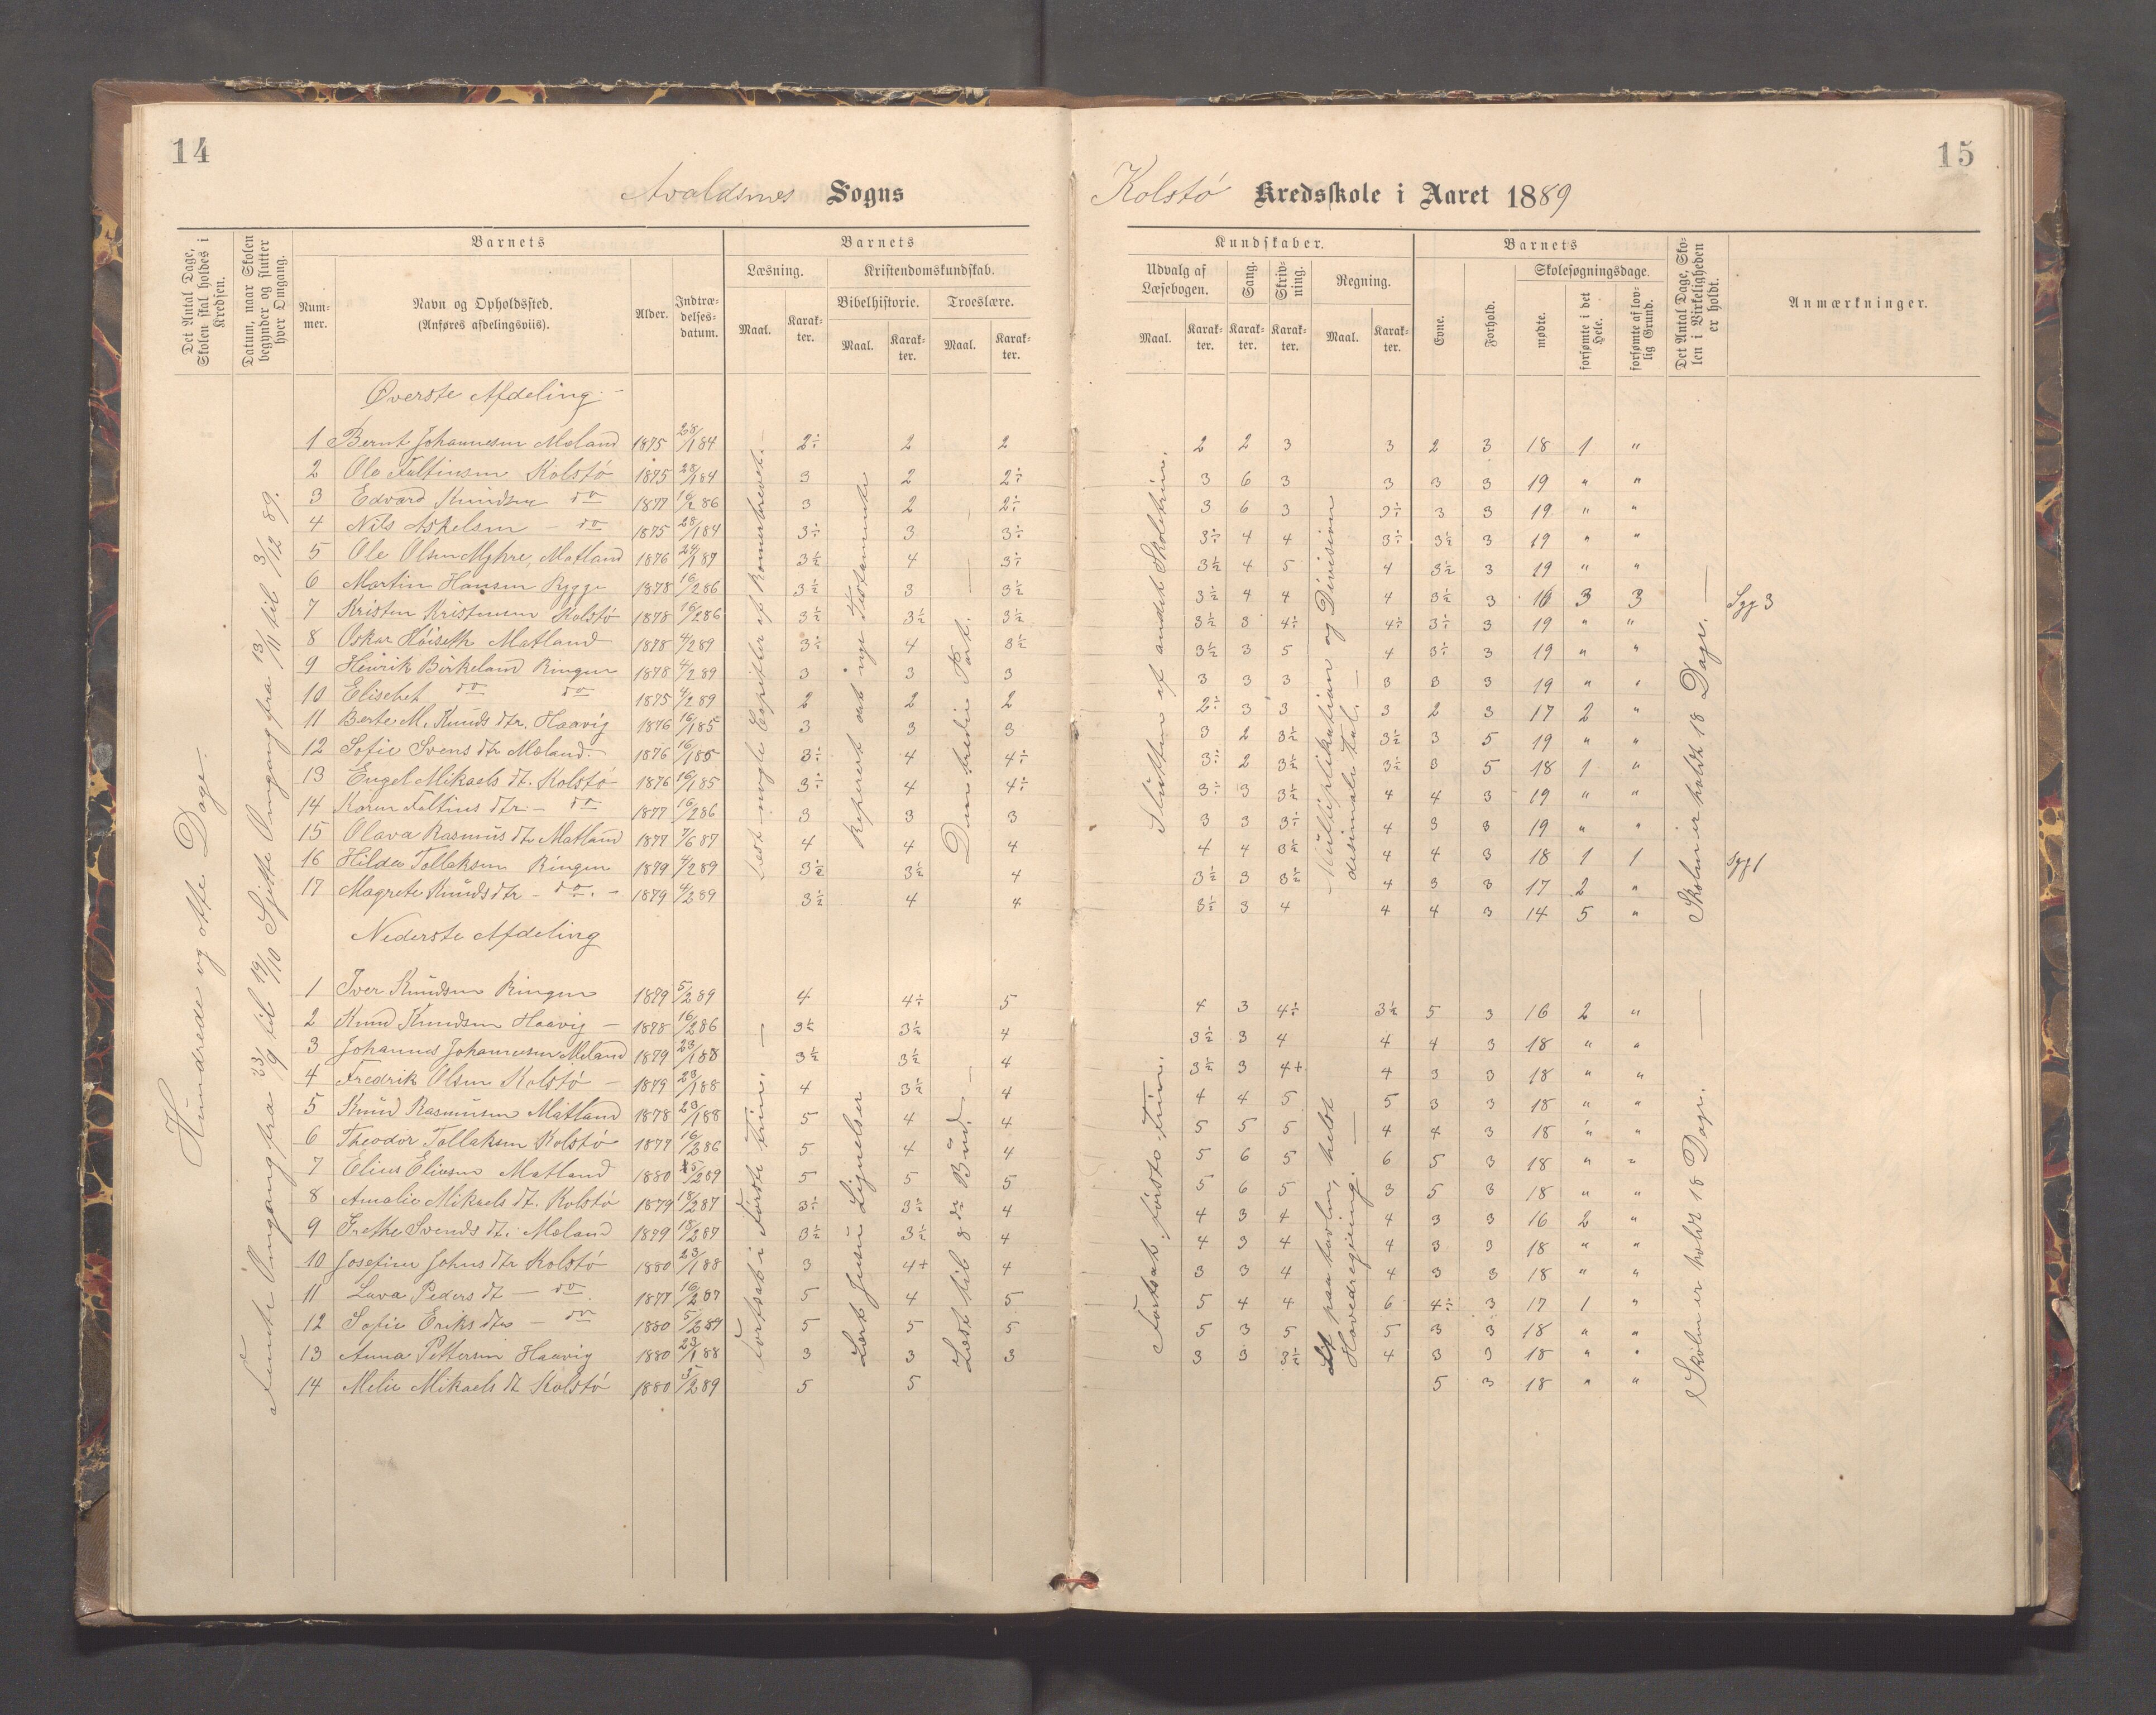 14
Avaldsnes Sogns
Det Antal Dage, Skolen skal holdes i Kredsen.
Datum, naar Skolen begynder og slutter hver Omgang.
Barnets
Num-mer.
Navn og Opholdssted.
(Anføres afdelingsviis).
Alder.
Indtræ-delses-datum.
Barnets
Læsning.
Maal.
Karak-ter.
Kristendomskundskab.
Bibelhistorie.
Maal.
Karak-ter.
Troeslære.
Maal.
Karak-ter.
Hundrede og otte Dage.
Femte Omgang fra 23/9 til 19/10 Sjette Omgang fra 13/11 til 3/12 89.
Øverste Afdeling
1 Bernt Johannesen Mæland 1875 28/1 84 2÷ 2 2
2 Ole Faltinsen Kolstø 1875 28/1 84 3 2 2÷
3 Edvard Knudsen do 1877 16/2 86 3 2 2÷
4 Nils Aspelsen - do 1875 28/1 84 3÷ 3 3÷
5 Ole Olsen Myhre, Matland 1876 24/1 87 3½ 4 3÷
6 Martin Hansen Rygge 1878 16/2 86 3½ 3 3½
7 Kristen Kristensen Kolstø 1878 16/2 86 3½ 3½ 3½
8 Oskar Høiseth Matland 1878 4/2 89 3÷ 4 3½
9 Henrik Birkeland Ringen 1878 4/2 89 3 3 3
10 Elisebet do do 1875 4/2 89 2 2 2
11 Berte M. Knuds dtr. Haavig 1876 16/1 85 3 3 3
12 Sofie Svens dtr Mæland 1876 16/1 85 3÷ 4 4÷
13 Engel Mikaels dt. Kolstø 1876 16/1 85 3÷ 4 4÷
14 Karen Faltins dtr. - do 1877 16/2 86 3 3 3
15 Olava Rasmus dtr Matland 1877 7/6 87 4 4 4
16 Hilda Tollaksen Ringen 1879 4/2 89 3½ 3½ 4
17 Magrete Knuds dtr - do. - 1879 4/2 89 3½ 4 4
Læst nogle Epistler af Romerbrevet.
Repeteret det nye Testamente
Den tredie Part.
Nederste Afdeling
1 Iver Knudsen Ringen 1879 5/2 89 4 4÷ 5
2 Knud Knudsen Haavig - 1878 16/2 86 3½ 3½ 4
3 Johannes Johannesen Mæland 1879 23/1 88 3½ 3½ 4
4 Fredrik Olsen Kolstø - 1879 23/1 88 4 3½ 4
5 Knud Rasmusen Matland 1878 23/1 88 5 4 4
6 Theodor Tollaksen Kolstø 1877 16/2 86 5 4 4
7 Elius Eliusen Matland 1880 5/2 89 5 5 5
8 Amalie Mikaels dt. Kolstø 1879 18/2 87 3÷ 3÷ 4
9 Grethe Svends dt. Mæland 1879 18/2 87 3½ 3½ 4
10 Josefine Johns dtr Kolstø 1880 23/1 88 3 4+ 4
11 Lava Peders dt - do. 1877 16/2 87 5 4 5
12 Sofie Eriks dtr - do 1880 5/2 89 5 5 5
13 Anna Pettersen Haavig 1880 23/1 88 3 3 3
14 Melie Mikaels dt Kolstø 1880 5/2 89 5 5
Fortsat i Første Trin.
Lært Jesu Lignelser
Læst til 8de Bud.
15
Kolstø Kredsskole i Aaret 1889
Kundskaber.
Udvalg af Læsebogen.
Maal.
Karak-ter.
Sang.
Karak-ter.
Skriv-ning.
Karak-ter.
Regning.
Maal.
Karak-ter.
Barnets
Evne.
Forhold.
Skolesøgningsdage.
mødte.
forsømte i det Hele.
forsømte af lov-lig Grund.
Det Antal Dage, Sko-len i Virkeligheden er holdt.
Anmærkninger.
2 2 3 3 2 3 18 1 "
3 6 3 3 3 3 19 " "
3 6 3 3÷ 3 3 19 " "
3÷ 4 4 3÷ 3½ 3 19 " "
3½ 4 5 4 3½ 3 19 " "
3½ 4 4 4 3½ 3 16 3 3 Syg 3
3½ 3 4÷ 4÷ 3÷ 3 19 " "
3½ 3 5 4 3÷ 3 19 " "
3 3 3 3 3 3 19 " "
2÷ 3 3 3 2 3 17 2 "
3 2 3½ 3½ 3 5 19 " "
3÷ 2 3½ 3½ 3 5 18 1 "
3÷ 3 3½ 4 4 3 19 " "
3 3 3÷ 4 3 3 19 " "
4 4 3½ 4 4 3 18 1 1 Syg 1
3½ 3 3½ 4 3 3 17 2 "
3½ 3 4 4 4 3 14 5 "
Slutten af andet Skoletrin.
Multiplikation og Division
desimale tal.
Skolen er holdt 18 Dage.
4 3 4÷ 3½ 5 3 16 2 "
3½ 3 4 4 4 3 18 " "
3½ 3 4+ 4 3 3 18 " "
4 4 5 5 3 3 18 " "
5 5 5 4 4 3 18 " "
5 6 5 6 5 3 18 " "
5 6 5 3 5 3 18 " "
4 3 4 4 3 3 16 2 "
4 3 4 4 3 3 18 " "
3 3 4 4 3 3 18 " "
5 4 4 6 4½ 3 17 1 "
5 3 5 5 3 3 18 " "
3 3 3½ 4 3 3 18 " "
5 3 18 " "
Fortsat første Trin.
paa tavlen, helst
Hovedregning.
Skolen er holdt 18 Dage.